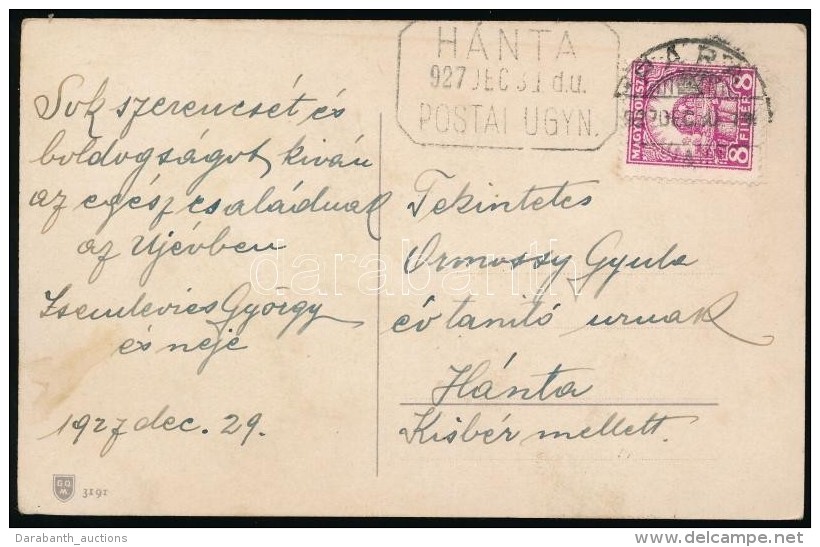 HÁNTA
927 DEC 30 d.u.
POSTAI ÜGYN.
MAGYARORSZÁG
8 FILLÉR 8
Sok szerencsét és
boldogságot kiván
az egész családnak
az Ujévben
György
és neje
1927 dec. 29.
Tekintetes
Ormossy Gyula
év tanító urnak
Hánta
Kisbér mellett.
G.O.M
3191
darabanth
Darabanth_auctions
delcampe.net